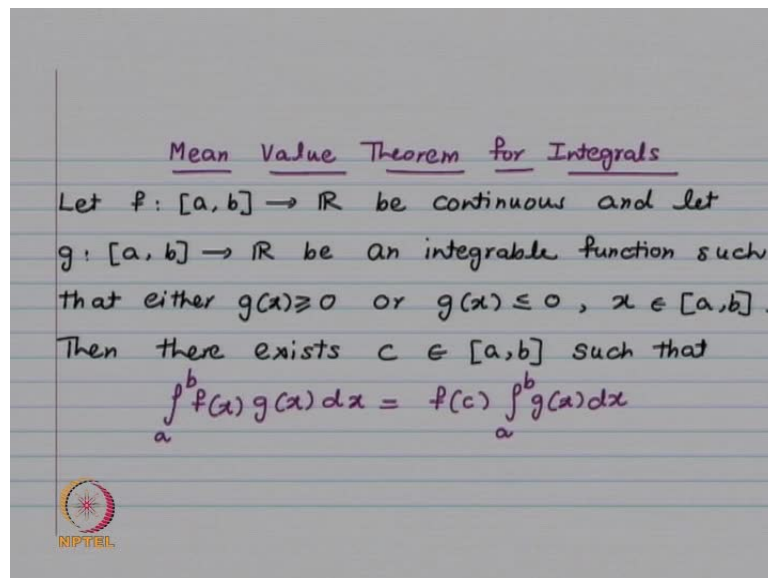 Mean Value Theorem for Integrals
Let f : [a, b] → ℝ be continuous and let
g : [a, b] → ℝ be an integrable function such
that either g(x) ≥ 0 or g(x) ≤ 0 , x ∈ [a, b] .
Then there exists c ∈ [a, b] such that
∫_a^b f(x) g(x) dx = f(c) ∫_a^b g(x) dx
NPTEL